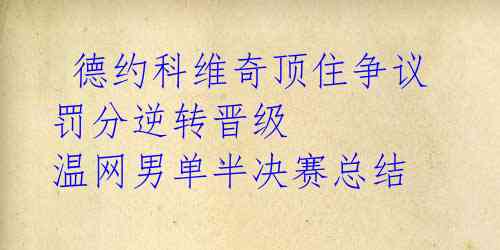 德约科维奇顶住争议
罚分逆转晋级
温网男单半决赛总结